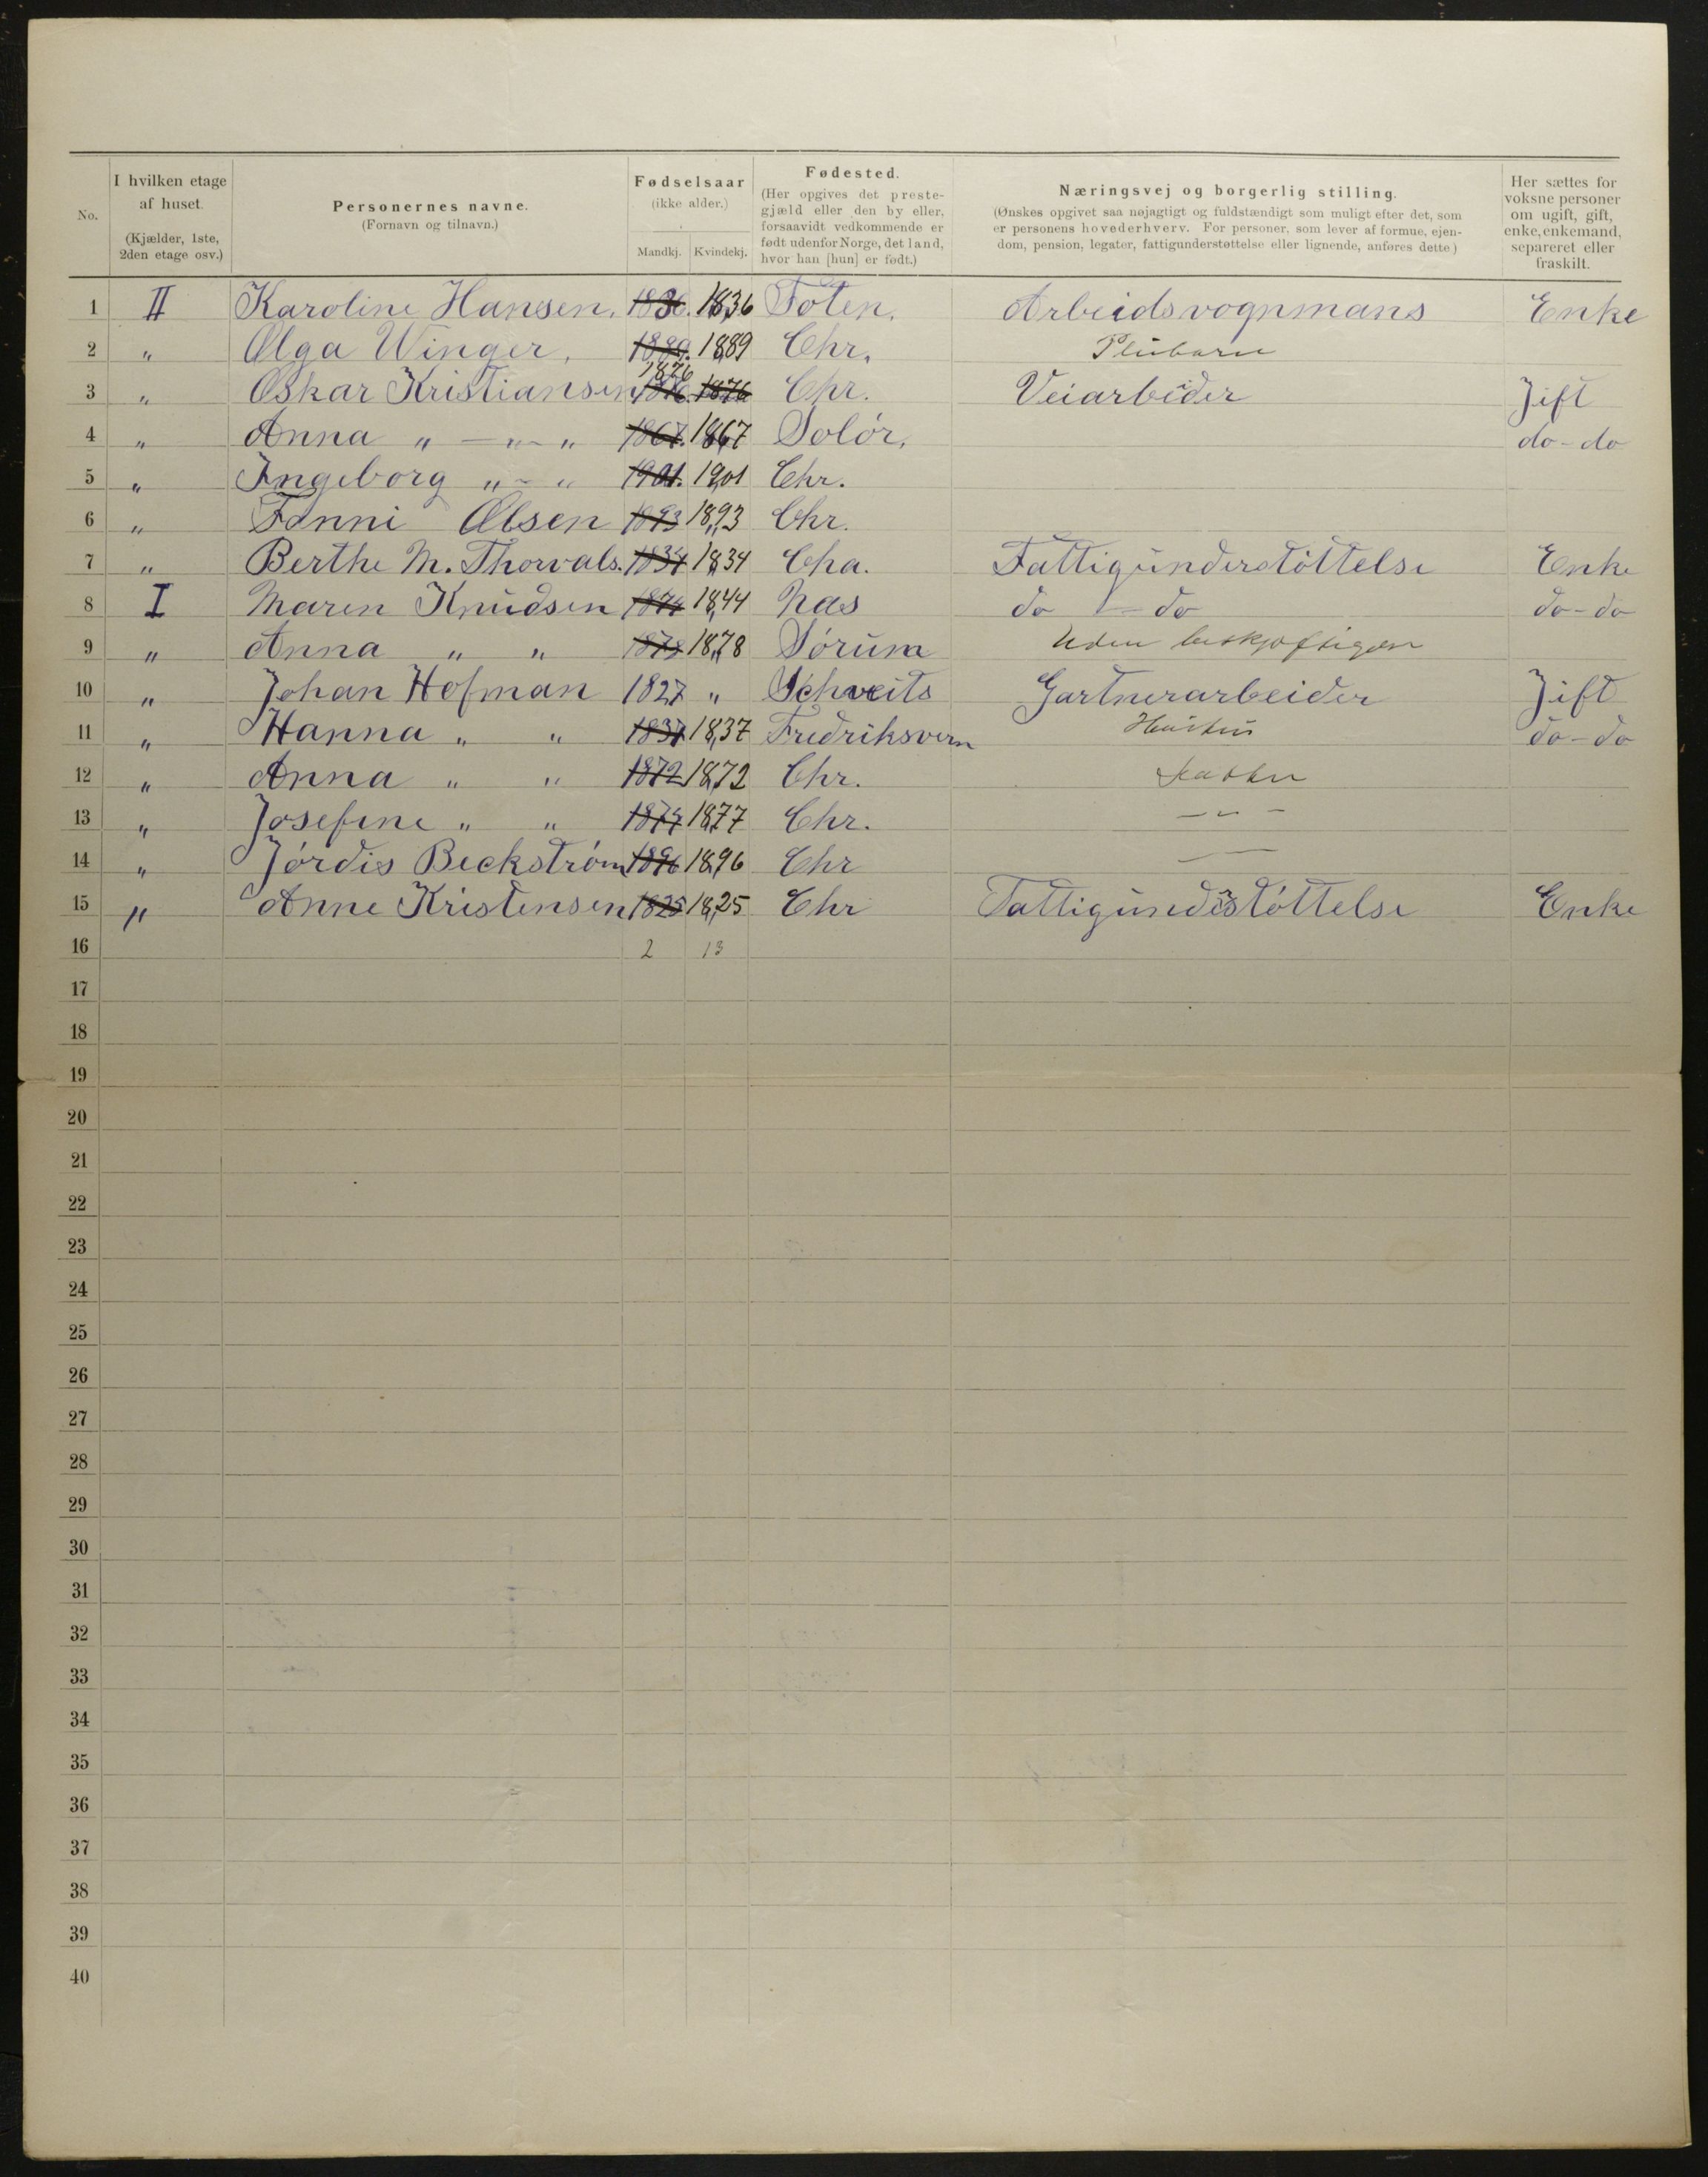 No. | I hvilken etage af huset. (Kjælder, 1ste, 2den etage osv.) | Personernes navne. (Fornavn og tilnavn.) | Fødselsaar (ikke alder.) Mandkj. Kvindekj. | Fødested. (Her opgives det prestegjæld eller den by eller, forsaavidt vedkommende er født udenfor Norge, det land, hvor han [hun] er født.) | Næringsvej og borgerlig stilling. (Ønskes opgivet saa nøjagtigt og fuldstændigt som muligt efter det, som er personens hovederhverv. For personer, som lever af formue, ejendom, pension, legater, fattigunderstøttelse eller lignende, anføres dette.) | Her sættes for voksne personer om ugift, gift, enke, enkemand, separeret eller fraskilt.
1 II Karoline Hansen. 1836. 1836 Toten. Arbeidsvognmans Enke
2 " Olga Winger, 1889. 1889 Chr. Pleibarn
3 " Oskar Kristiansen 1876 1876. 1876 Chr. Veiarbeider Jift
4 " Anna " — " — " 1867. 1867 Solör, do - do
5 " Ingeborg " - " 1901. 1901 Chr.
6 " Fanni Olsen 1893 1893 Chr.
7 " Berthe M. Thorvals. 1834 1834 Cha. Fattigünderstöttelse Enke
8 I Maren Knüdsen 1844 1844 Nas do — do do - do
9 " Anna " " 1878 1878 Sörüm Uden
10 " Johan Hofman 1827 " Schveits Gartnerarbeider Jift
11 " Hanna " " 1837 1837 Fredriksvern do - do
12 " Anna " " 1872 1872 Chr.
13 " Josefine " " 1877 1877 Chr. — " —
14 " Jördis Beckström 1896 1896 Chr —
15 " Anne Kristensen 1825 1825 Chr Fattigünderstöttelse Enke
16 2 13
17
18
19
20
21
22
23
24
25
26
27
28
29
30
31
32
33
34
35
36
37
38
39
40